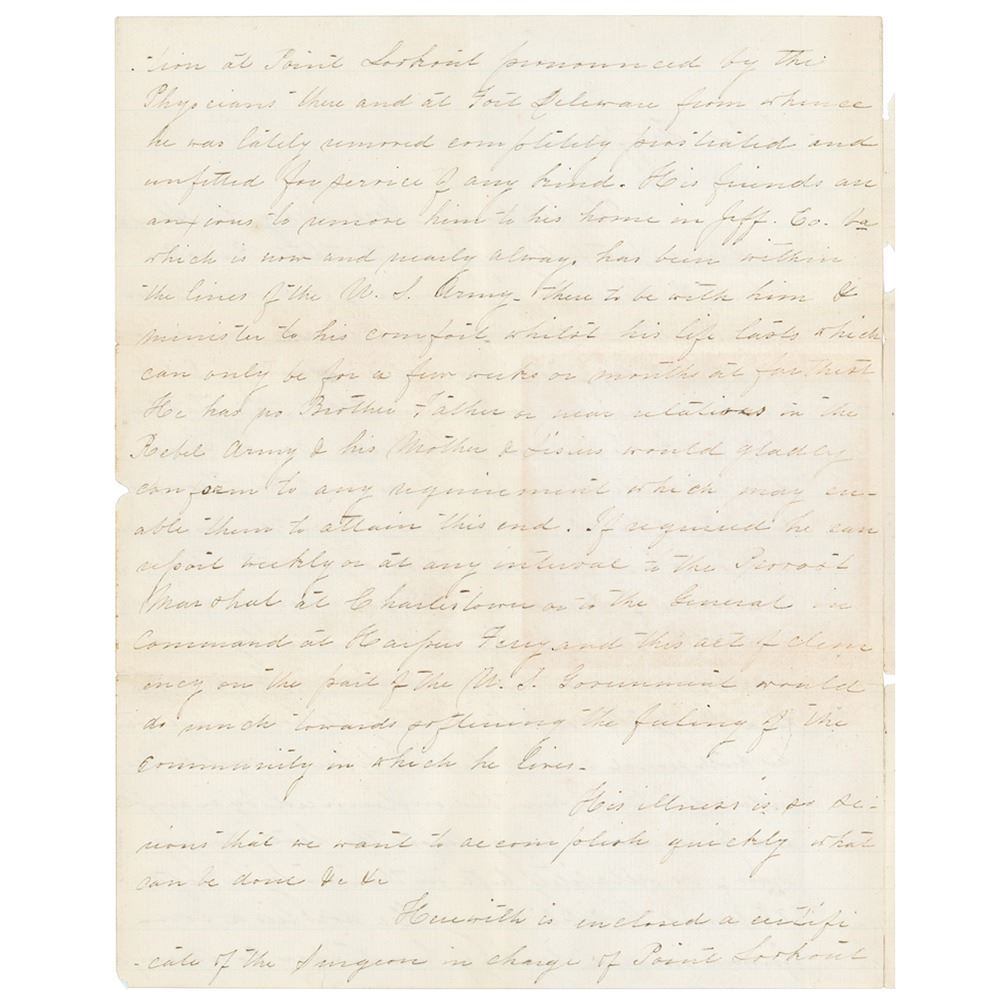 -tion at Point Lookout pronounced by the
Physicians there and at Fort Deleware from whence
he was lately removed completely prostrated and
unfitted for service of any kind. His friends are
anxious to remove him to his home in Jeff. Co. Va
which is now and nearly always has been within
the lines of the U. S. Army - there to be with him &
minister to his comfort whilst his life lasts which
can only be for a few weeks or months at farthest
He has no Brother Father or near relatives in the
Rebel Army & his Mother & Sisters would gladly
conform to any requirement which may en-
able them to attain this end. If required he can
report weekly or at any interval to the Provost
Marshal at Charlestown or to the General in
Command at Harpers Ferry and this act of clem
ency on the part of the U. S. Government would
do much towards softening the feeling of the
community in which he lives -
His illness is so se-
rious that we want to accomplish quickly what
can be done &c &c
Herewith is enclosed a certifi
-cate of the Surgeon in charge of Point Lookout